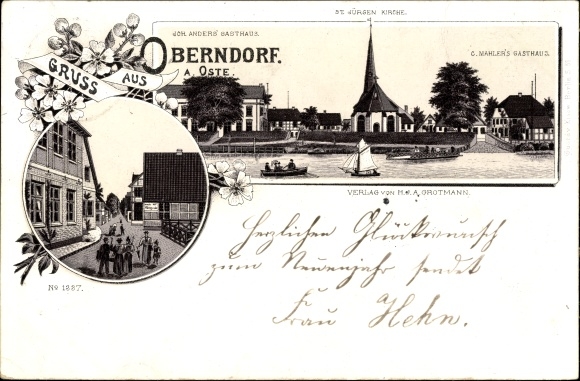 ST. JÜRGEN KIRCHE.
JOH. ANDERS' GASTHAUS.
C. MAHLER'S GASTHAUS.
GRUSS AUS
OBERNDORF.
A. OSTE.
VERLAG VON H. & A. GROTMANN.
Herzlichen Glückwunsch
zum Neuenjahr sendet
Frau Hehn.
No 1337.